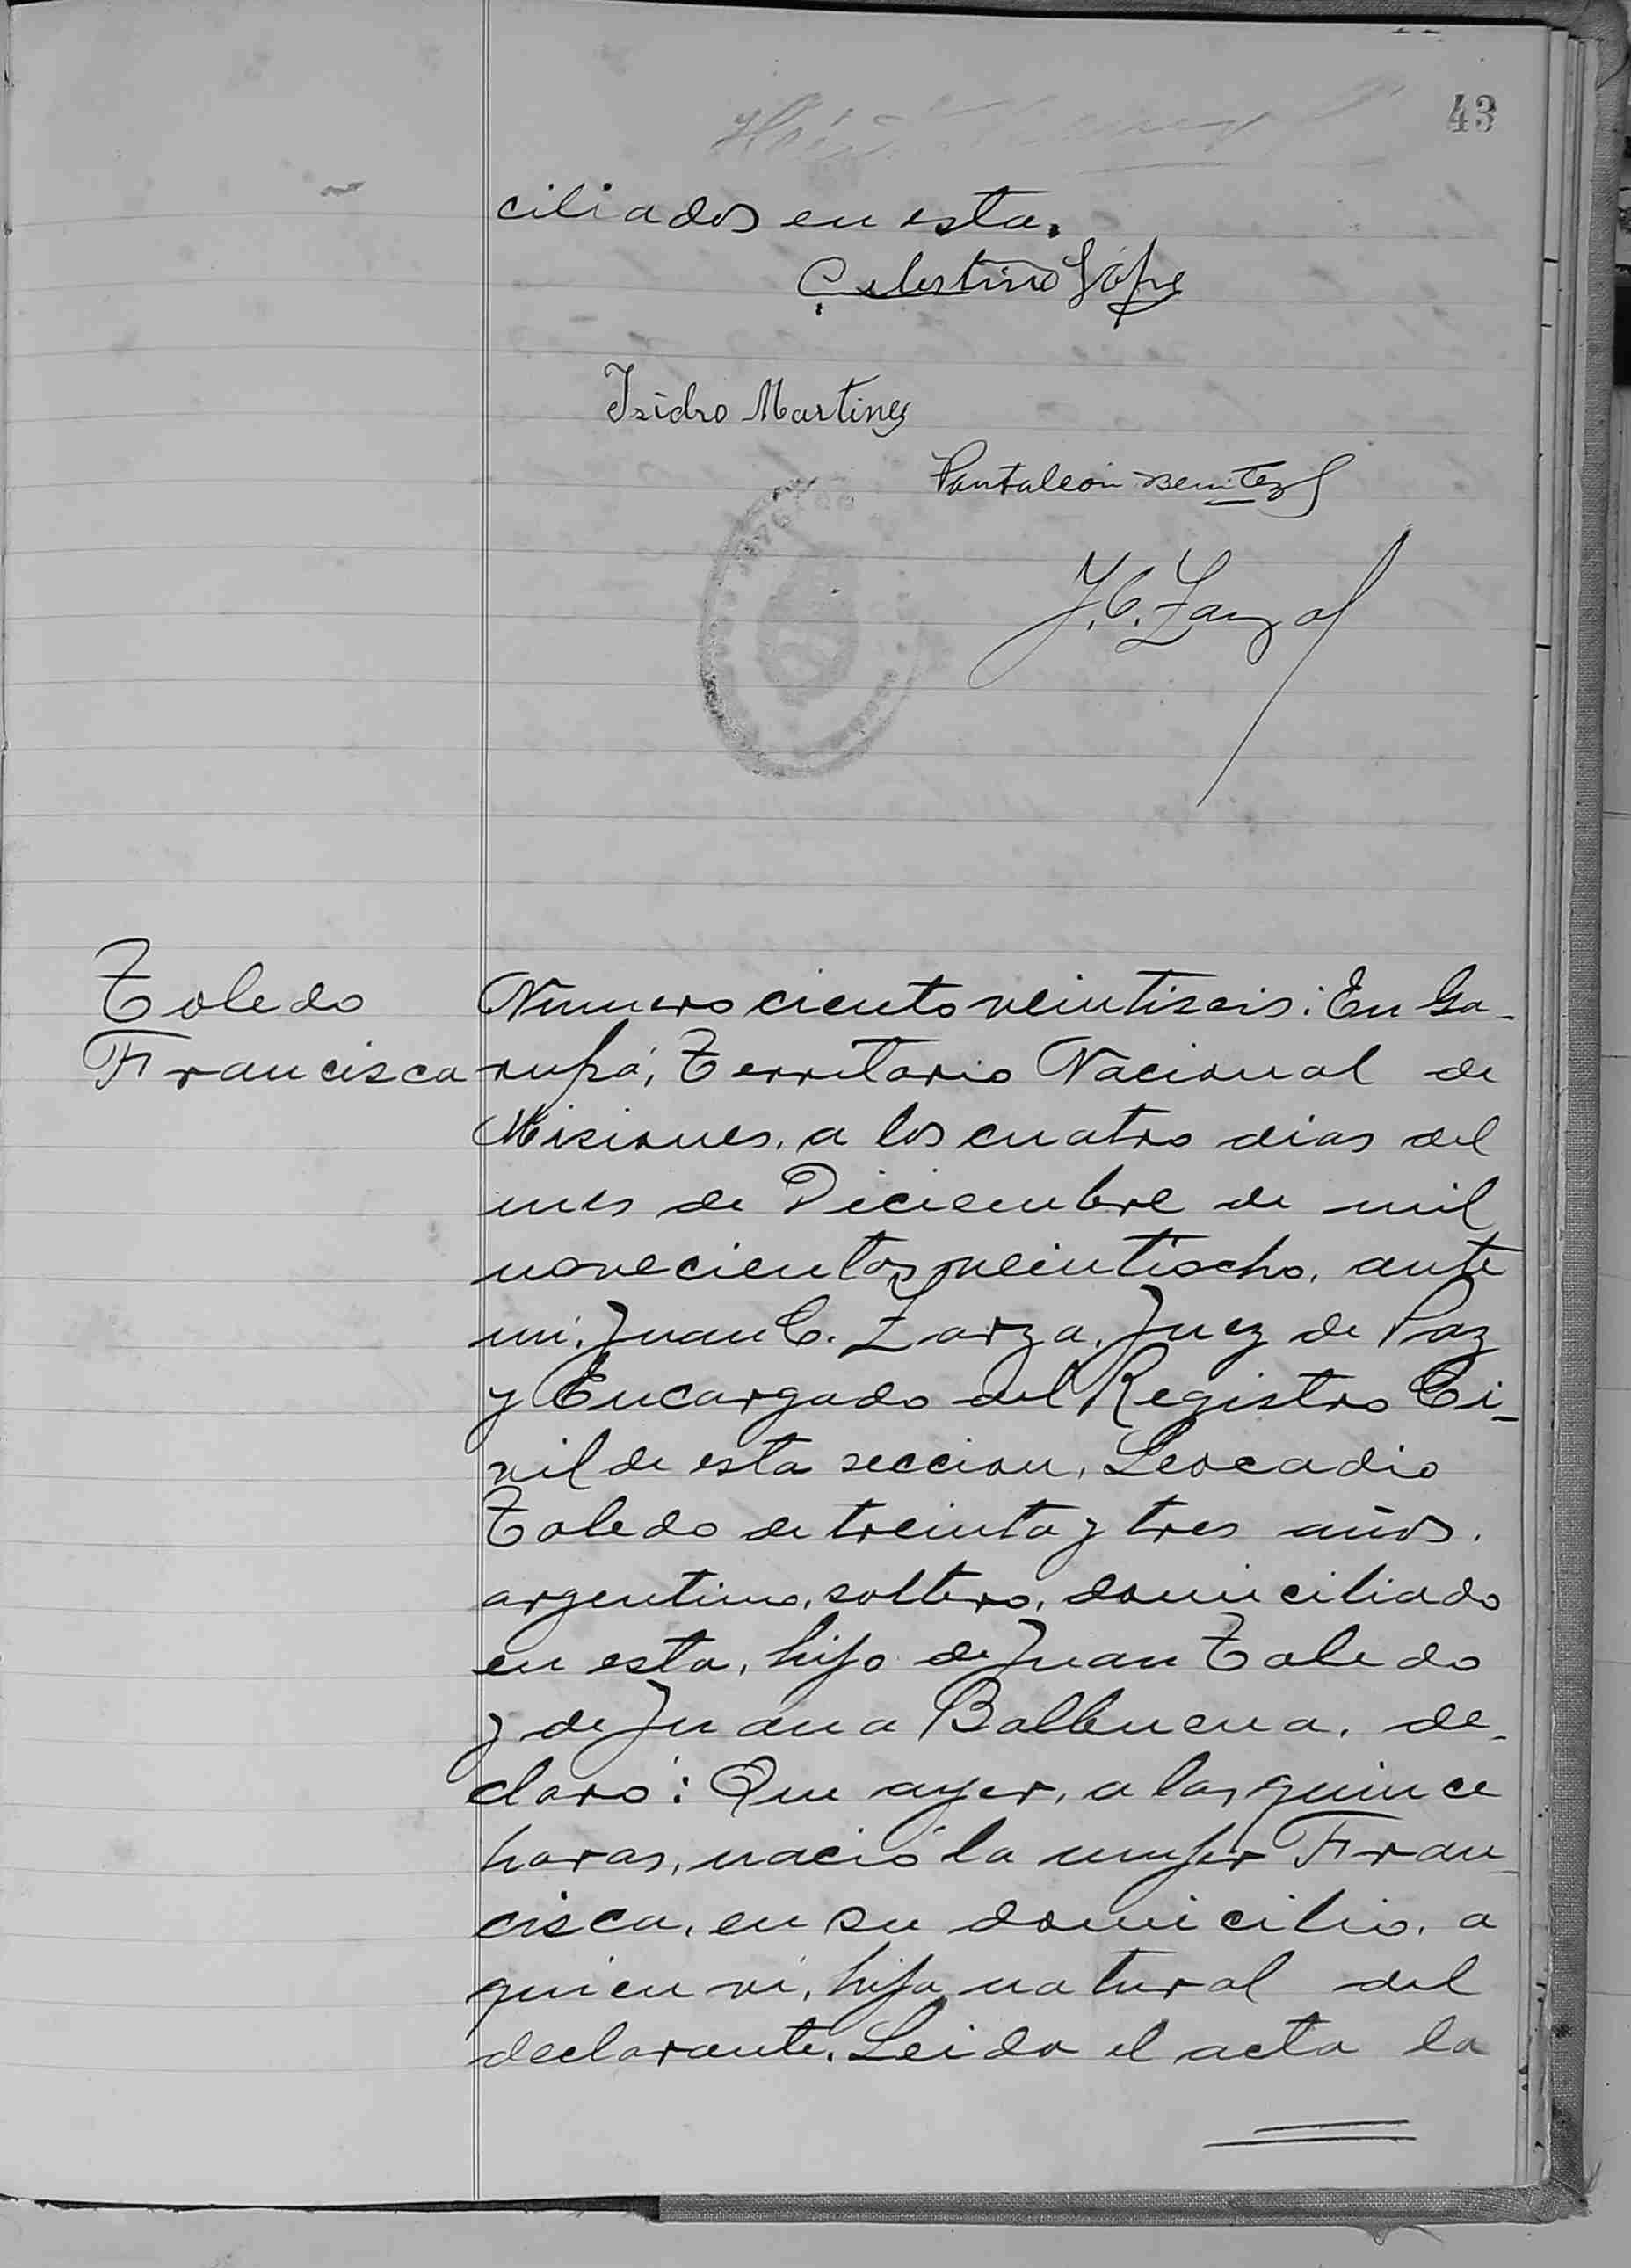 43
ciliados en esta.
Celestino López
Isidro Martinez
Pantaleón Benitez
J. C. Zarza
Toledo
Francisca
Número ciento veintiseis: En Ga-
rupá, Territorio Nacional de
Misiones, a los cuatro dias del
mes de Diciembre de mil
novecientos veintiocho, ante
mi, Juan C. Zarza, Juez de Paz
y Encargado del Registro Ci-
vil de esta seccion, Leocadio
Toledo de treinta y tres años,
argentino, soltero, domiciliado
en esta, hijo de Juan Toledo
y de Juana Balbuena, de-
claró: Que ayer, a las quince
horas, nació la mujer Fran-
cisca, en su domicilio, a
quien ví, hija natural del
declarante. Leida el acta la